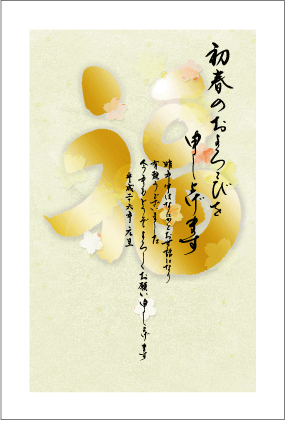 初春のおよろこびを
申し上げます
昨年中はなにかとお世話になり
有難うございました
今年もどうぞよろしくお願い申し上げます
平成二十六年 元旦
福